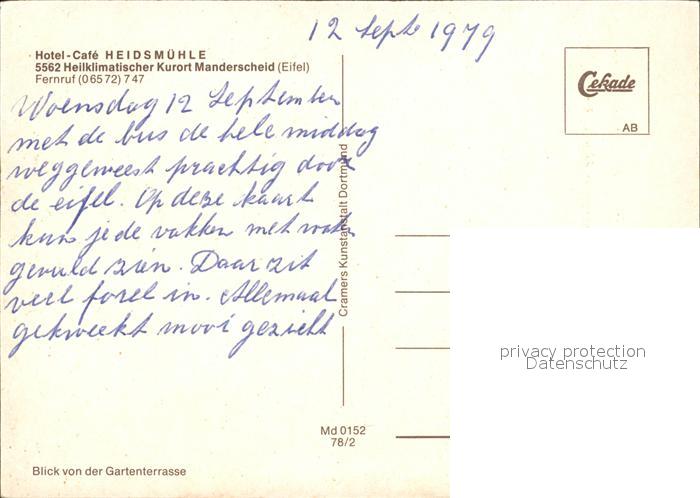 12 Sept 1979
Hotel-Café HEIDSMÜHLE
5562 Heilklimatischer Kurort Manderscheid (Eifel)
Fernruf (06572) 747
Woensdag 12 September
met de bus de hele middag
weggeweest prachtig door
de eifel. Op deze kaart
kun je de vakken met water
gevuld zien. Daar zit
veel forel in. Allemaal
gekweekt mooi gezicht
Cramers Kunstanstalt Dortmund
Cekade
AB
privacy protection
Datenschutz
Md 0152
78/2
Blick von der Gartenterrasse